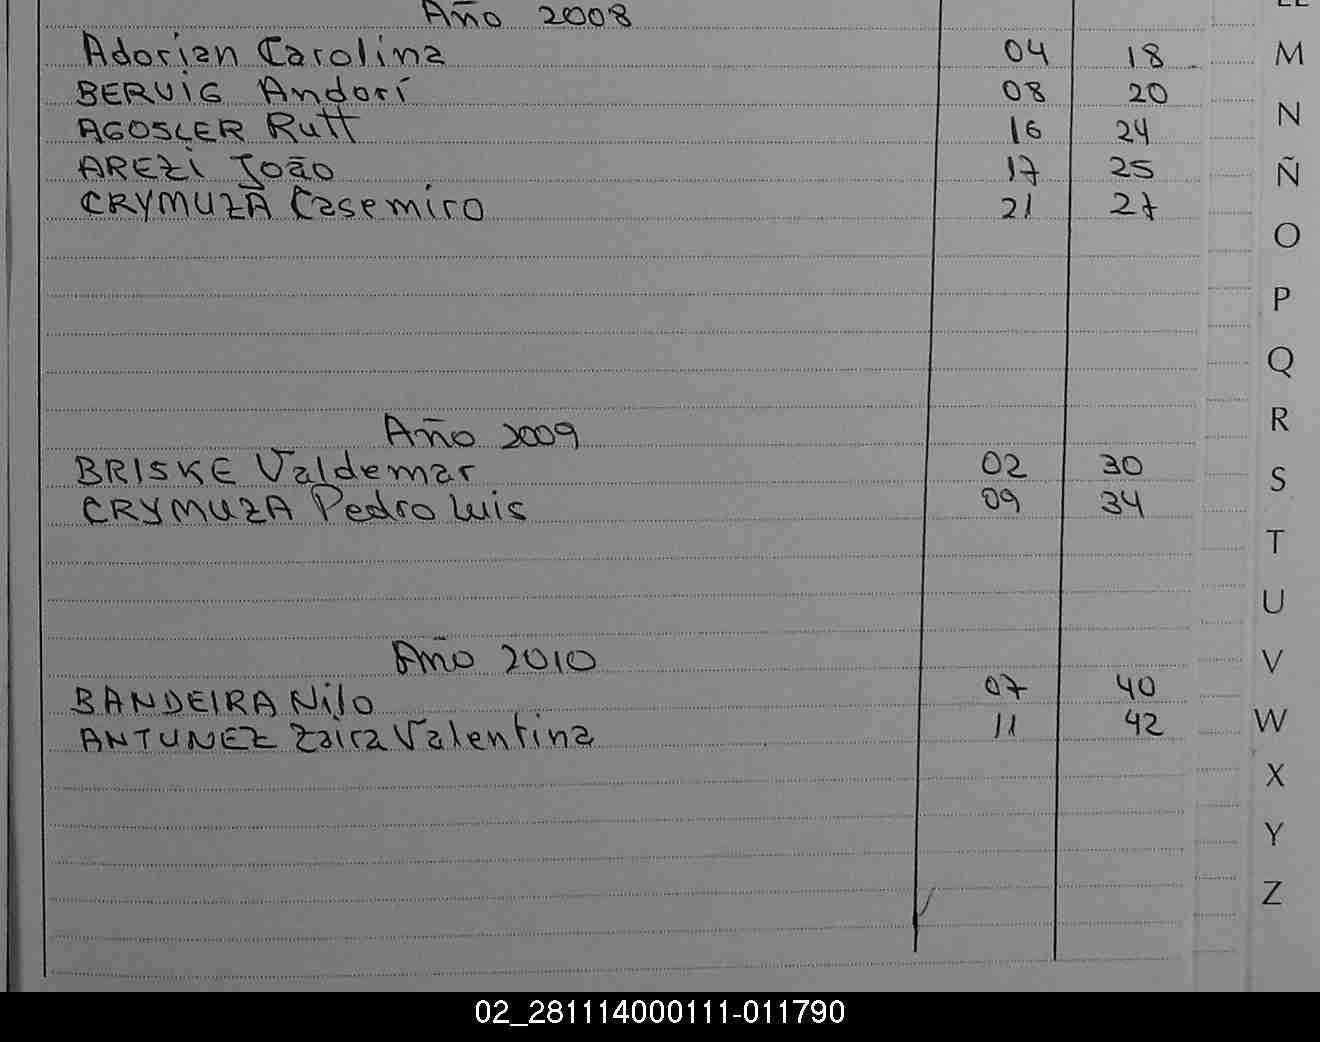 Año 2008
Adorian Carolina 04 18
BERVIG Andorí 08 20
AGOSLER Rutt 16 24
AREZI João 17 25
CRYMUZA Casemiro 21 27
Año 2009
BRISKE Valdemar 02 30
CRYMUZA Pedro Luis 09 34
Año 2010
BANDEIRA Nilo 07 40
ANTUNEZ Zaira Valentina 11 42
M
N
Ñ
O
P
Q
R
S
T
U
V
W
X
Y
Z
02_281114000111-011790